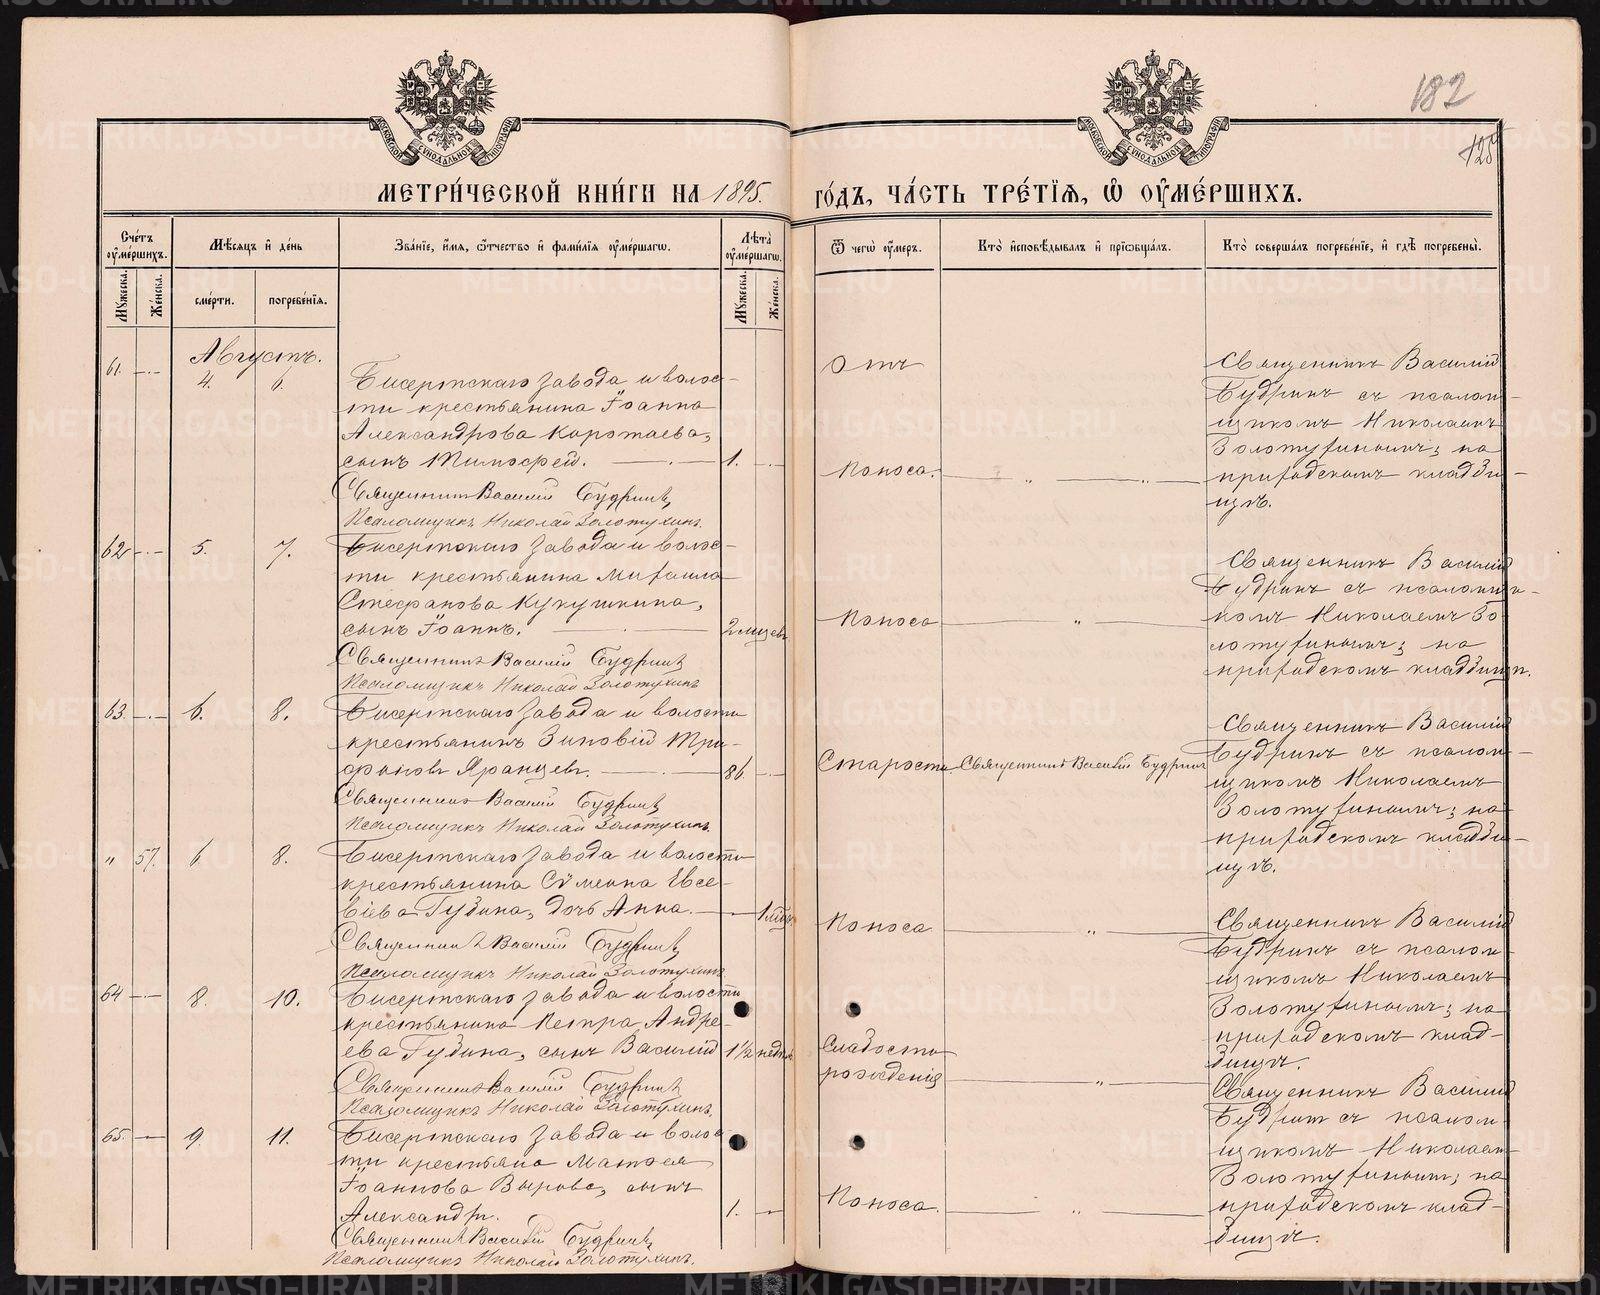 182
125
МОСКОВСКОЙ СУНОДАЛЬНОЙ ТИПОГРАФІИ
МОСКОВСКОЙ СУНОДАЛЬНОЙ ТИПОГРАФІИ
МЕТРИ́ЧЕСКОЙ КНИ́ГИ НА 1895. ГО́ДЪ, ЧА́СТЬ ТРЕ́ТІѦ, Ѡ҆ ОУ҆МЕ́РШИХЪ.
Сче́тъ оу҆ме́ршихъ.
Мѣ́сяцъ и҆ де́нь
Зва́нїе, и҆́мя, ѻ҆́тчество и҆ фами́лїя оу҆ме́ршагѡ.
Лѣ́та оу҆ме́ршагѡ.
Ѿ чегѡ̀ оу҆́меръ.
Кто̀ и҆сповѣ́дывалъ и҆ прїѡбща́лъ.
Кто̀ соверша́лъ погребе́нїе, и҆ гдѣ̀ погребены̀.
Мꙋ́жеска.
Же́нска.
сме́рти.
погребе́нїя.
Мꙋ́жеска.
Же́нска.
Августъ.
61. -.- 4. 6. Бисертскаго завода и волос-
ти крестьянина Іоанна
Александрова Коротаева,
сынъ Тимофей. 1. -.-
Священникъ Василій Будринъ
Псаломщикъ Николай Золотухинъ.
Отъ
поноса.
Священникъ Василій
Будринъ съ псалом-
щикомъ Николаемъ
Золотухинымъ; на
приходскомъ кладби-
щѣ.
62 -.- 5. 7. Бисертскаго завода и волос-
ти крестьянина Михаила
Стефанова Кукушкина,
сынъ Іоаннъ. 2 мѣсяц
Священникъ Василій Будринъ
Псаломщикъ Николай Золотухинъ
Поноса
Священникъ Василій
Будринъ съ псаломщи-
комъ Николаемъ Зо-
лотухинымъ; на
приходскомъ кладбищѣ.
63. -.- 6. 8. Бисертскаго завода и волости
крестьянинъ Зиновій Три-
фоновъ Яранцевъ. 86 -.-
Священникъ Василій Будринъ
Псаломщикъ Николай Золотухинъ.
Старости Священникъ Василій Будринъ
Священникъ Василій
Будринъ съ псалом-
щикомъ Николаемъ
Золотухинымъ; на
приходскомъ кладби-
щѣ.
" 57. 6 8. Бисертскаго завода и волости
крестьянина Сѵмеона Евсе-
віева Гудина, дочь Анна. 1 мѣс
Священникъ Василій Будринъ
Псаломщикъ Николай Золотухинъ
Поноса
Священникъ Василій
Будринъ съ псалом-
щикомъ Николаемъ
Золотухинымъ; на
приходскомъ клад-
бищѣ.
64 -.- 8. 10. Бисертскаго завода и волости
крестьянина Петра Андре-
ева Гудина, сынъ Василій 1½ недѣл
Священникъ Василій Будринъ
Псаломщикъ Николай Золотухинъ.
Слабости
рожденія
Священникъ Василій
Будринъ съ псалом-
щикомъ Николаемъ
Золотухинымъ; на
приходскомъ клад-
бищѣ.
65. 9. 11. Бисертскаго завода и волос-
ти крестьяна Матѳея
Іоаннова Вырова, сынъ
Александръ. 1.
Священникъ Василій Будринъ
Псаломщикъ Николай Золотухинъ.
Поноса.